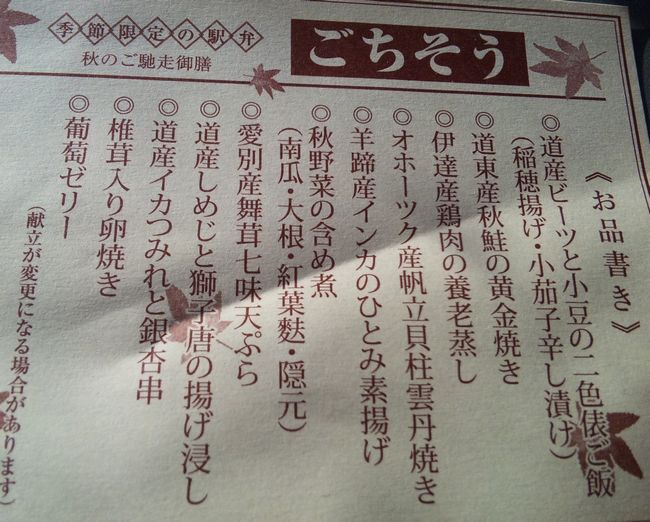 季節限定の駅弁
秋のご馳走御膳
ごちそう
《お品書き》
◎道産ビーツと小豆の二色俵ご飯
(稲穂揚げ・小茄子辛し漬け)
◎道東産秋鮭の黄金焼き
◎伊達産鶏肉の養老蒸し
◎オホーツク産帆立貝柱雲丹焼き
◎羊蹄産インカのひとみ素揚げ
◎秋野菜の含め煮
(南瓜・大根・紅葉麩・隠元)
◎愛別産舞茸七味天ぷら
◎道産しめじと獅子唐の揚げ浸し
◎道産イカつみれと銀杏串
◎椎茸入り卵焼き
◎葡萄ゼリー
(献立が変更になる場合があります)